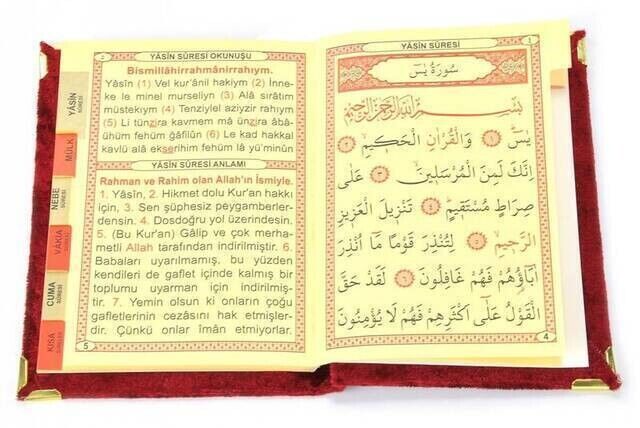 YÂSİN SÛRESİ OKUNUŞU
Bismillâhirrahmânirrahıym.
Yâsîn (1) Vel kur'ânil hakiym (2) İnne-
ke le minel murseliyn (3) Alâ sırâtim
müstekıym (4) Tenziylel aziyzir rahıym
(5) Li tünzira kavmem mâ ünzira âbâ-
ühüm fehüm ğâfilûn (6) Le kad hakkal
kavlü alâ ekserihim fehüm lâ yü'minûn
YÂSİN SÛRESİ ANLAMI
Rahman ve Rahim olan Allah'ın İsmiyle.
1. Yâsîn, 2. Hikmet dolu Kur'an hakkı
için, 3. Sen şüphesiz peygamberler-
densin. 4. Dosdoğru yol üzerindesin.
5. (Bu Kur'an) Gâlip ve çok merha-
metli Allah tarafından indirilmiştir. 6.
Babaları uyarılmamış, bu yüzden
kendileri de gaflet içinde kalmış bir
toplumu uyarman için indirilmiş-
tir. 7. Yemin olsun ki onların çoğu
gafletlerinin cezasını hak etmişler-
dir. Çünkü onlar îmân etmiyorlar.
5
YÂSİN SÛRESİ
MÜLK
NEBE SÛRESİ
VÂKIA
CUMA SÛRESİ
KISA
YÂSİN SÛRESİ
سُورَةُ يٰسٓ
بِسْمِ اللّٰهِ الرَّحْمٰنِ الرَّحِيمِ
يٰسٓ ﴿١﴾ وَالْقُرْاٰنِ الْحَكِيمِ ﴿٢﴾
اِنَّكَ لَمِنَ الْمُرْسَلِينَ ﴿٣﴾ عَلٰى
صِرَاطٍ مُسْتَقِيمٍ ﴿٤﴾ تَنْزِيلَ الْعَزِيزِ
الرَّحِيمِ ﴿٥﴾ لِتُنْذِرَ قَوْمًا مَٓا اُنْذِرَ
اٰبَٓاؤُ۬هُمْ فَهُمْ غَافِلُونَ ﴿٦﴾ لَقَدْ حَقَّ
الْقَوْلُ عَلٰٓى اَكْثَرِهِمْ فَهُمْ لَا يُؤْمِنُونَ
4